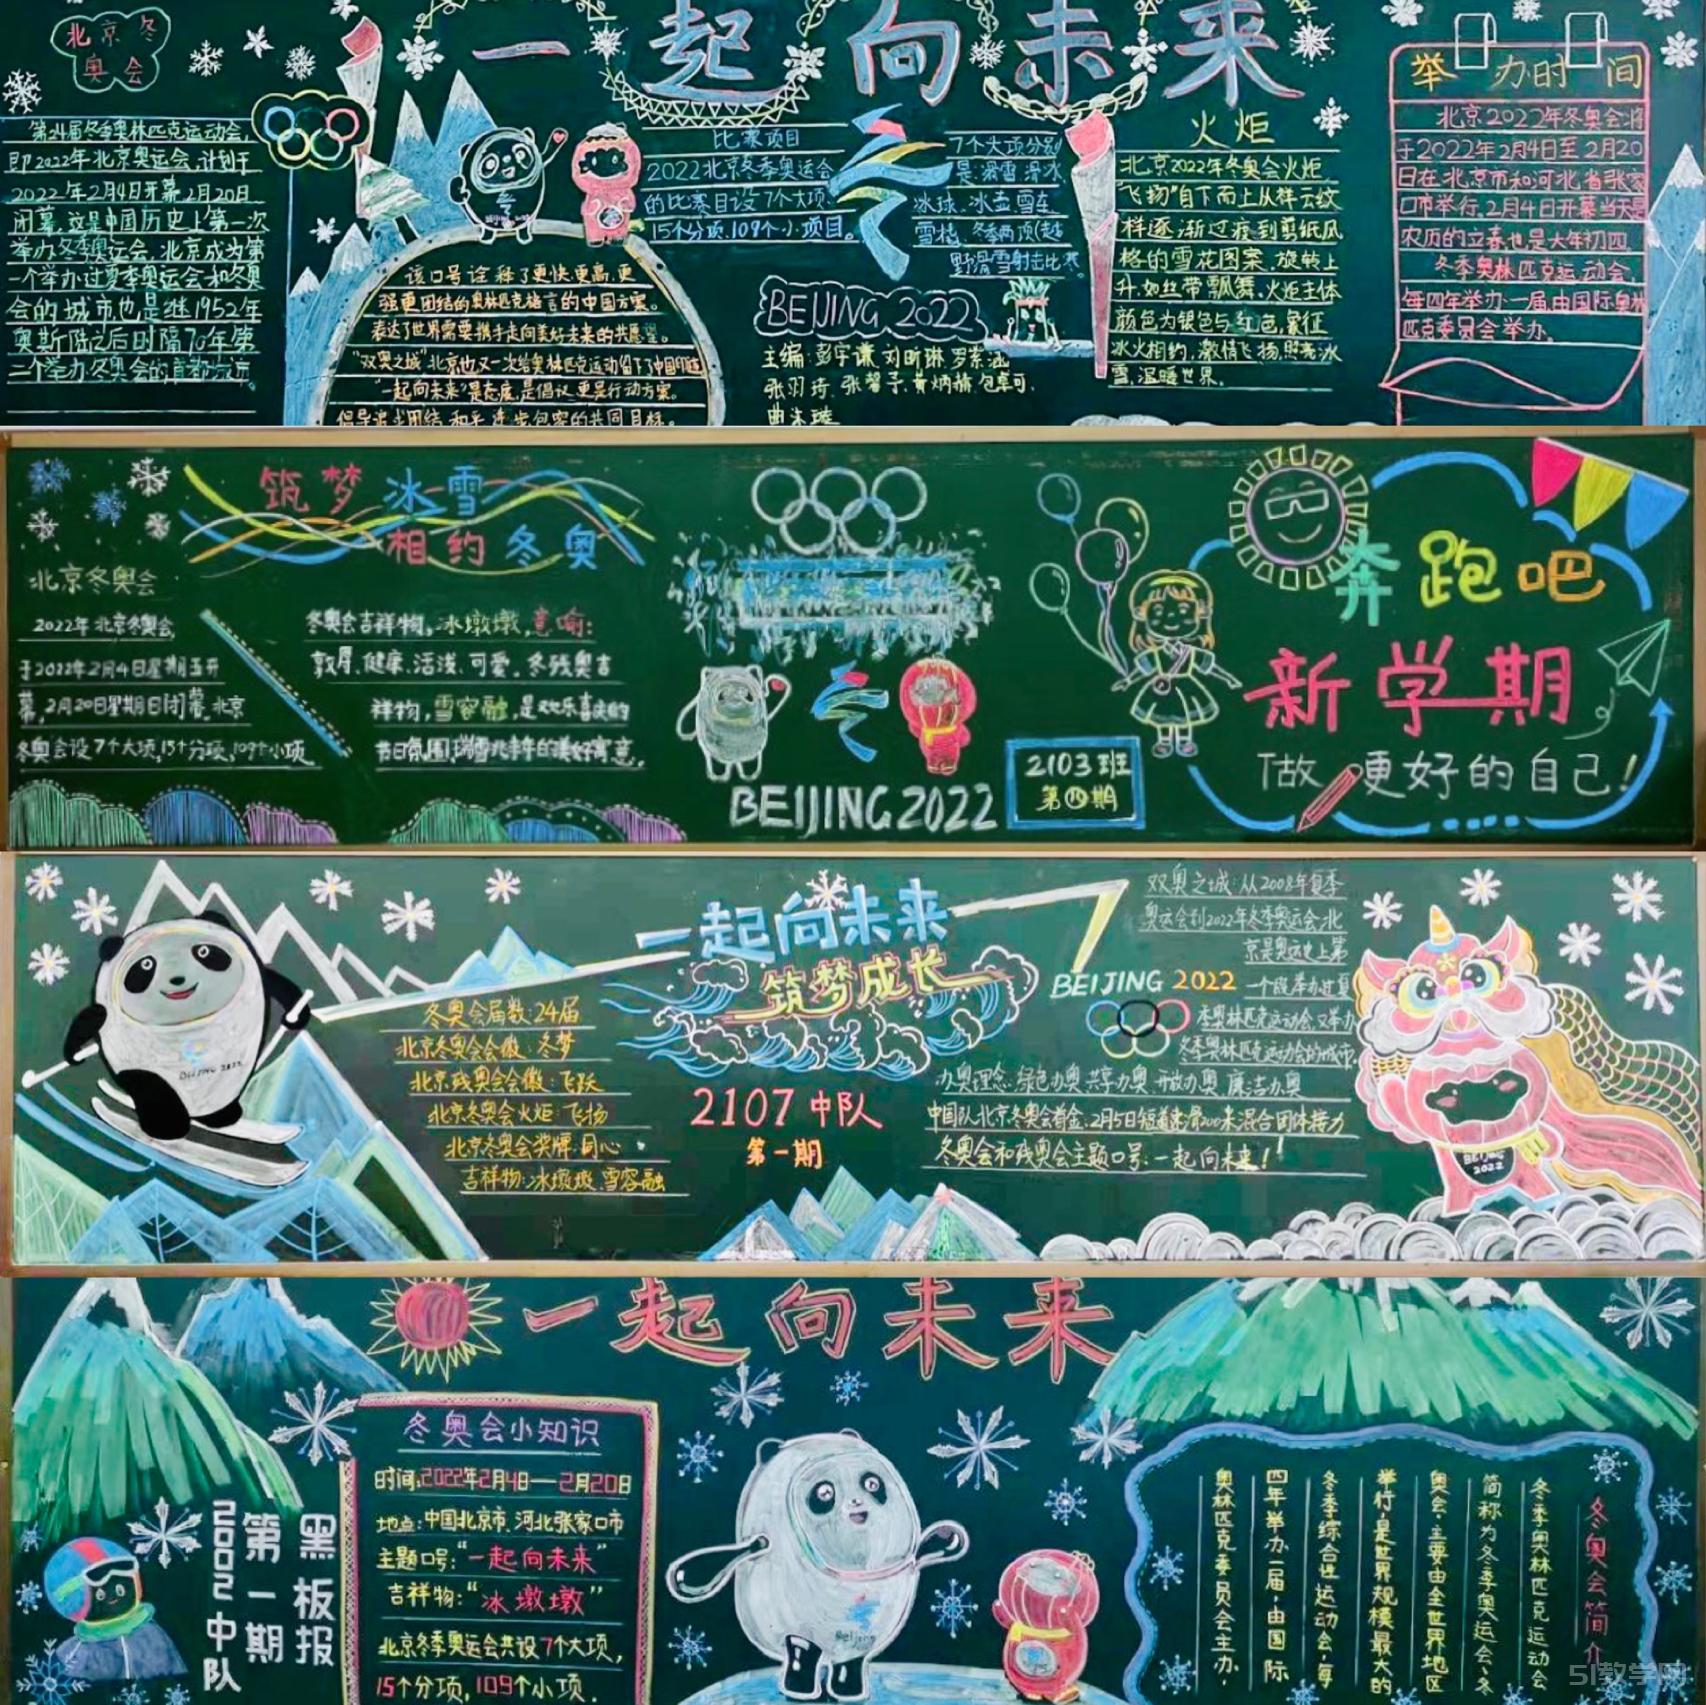 一起向未来
北京冬
奥会
第24届冬季奥林匹克运动会,
即2022年北京奥运会,计划于
2022年2月4日开幕,2月20日
闭幕,这是中国历史上第一次
举办冬季奥运会,北京成为第
一个举办过夏季奥运会和冬奥
会的城市,也是继1952年
奥斯陆之后时隔70年第
二个举办冬奥会的首都城市。
该口号诠释了更快更高更
强更团结的奥林匹克格言的中国方案。
表达了世界需要携手走向美好未来的共同愿望。
“双奥之城”北京也又一次给奥林匹克运动留下了中国印迹
“一起向未来”是态度,是倡议,更是行动方案。
倡导追求团结、和平、进步、包容的共同目标。
比赛项目
2022北京冬季奥运会
的比赛目设7个大项,
15个分项,109个小项目。
7个大项分别
是:滑雪、滑冰
冰球、冰壶、雪车
雪橇、冬季两项(越
野滑雪射击比赛
BEIJING 2022
主编:彭宇谦 刘昕琳
火炬
北京2022年冬奥会火炬
“飞扬”自下而上从祥云纹
样逐渐过渡到剪纸风
格的雪花图案,旋转上
升,如丝带飘舞。火炬主体
颜色为银色与红色,象征
冰火相约,激情飞扬,照亮冰
雪,温暖世界。
举办时间
北京2022年冬奥会将
于2022年2月4日至2月20
日在北京市和河北省张家
口市举行。2月4日开幕当天是
农历的立春也是大年初四
冬季奥林匹克运动会,
每四年举办一届,由国际奥林
匹克委员会举办。
筑梦冰雪
相约冬奥
北京冬奥会
2022年北京冬奥会,
于2022年2月4日星期五开
幕,2月20日星期日闭幕,北京
冬奥会设7个大项,15个分项,109个小项
冬奥会吉祥物,冰墩墩,意喻:
敦厚、健康、活泼、可爱。冬残奥吉
祥物,雪容融,是欢乐喜庆的
节日氛围,瑞雪兆丰年的美好寓意。
BEIJING2022
2103班
第四期
奔跑吧
新学期
做更好的自己!
一起向未来
筑梦成长
冬奥会届数:24届
北京冬奥会会徽:冬梦
北京残奥会会徽:飞跃
北京冬奥会火炬:飞扬
北京冬奥会奖牌:同心
吉祥物:冰墩墩、雪容融
BEIJING 2022
2107中队
第一期
BEIJING 2022
双奥之城:从2008年夏季
奥运会到2022年冬季奥运会,北
京是奥运史上第
一个既举办过夏
季奥林匹克运动会,又举办
冬季奥林匹克运动会的城市。
办奥理念:绿色办奥、共享办奥、开放办奥、廉洁办奥
中国队北京冬奥会首金:2月5日短道速滑2000米混合团体接力
冬奥会和残奥会主题口号:一起向未来!
BEIJING
2022
一起向未来
黑板报
第一期
2002中队
冬奥会小知识
时间:2022年2月4日—2月20日
地点:中国北京市、河北张家口市
主题口号:“一起向未来”
吉祥物:“冰墩墩”
北京冬季奥运会共设7个大项,
15个分项,109个小项。
Beijing
冬奥会简介
冬季奥林匹克运动会
简称为冬季奥运会、冬
奥会。主要由全世界地区
举行,是世界规模最大的
冬季综合性运动会,每
四年举办一届,由国际
奥林匹克委员会主办。
51教学网